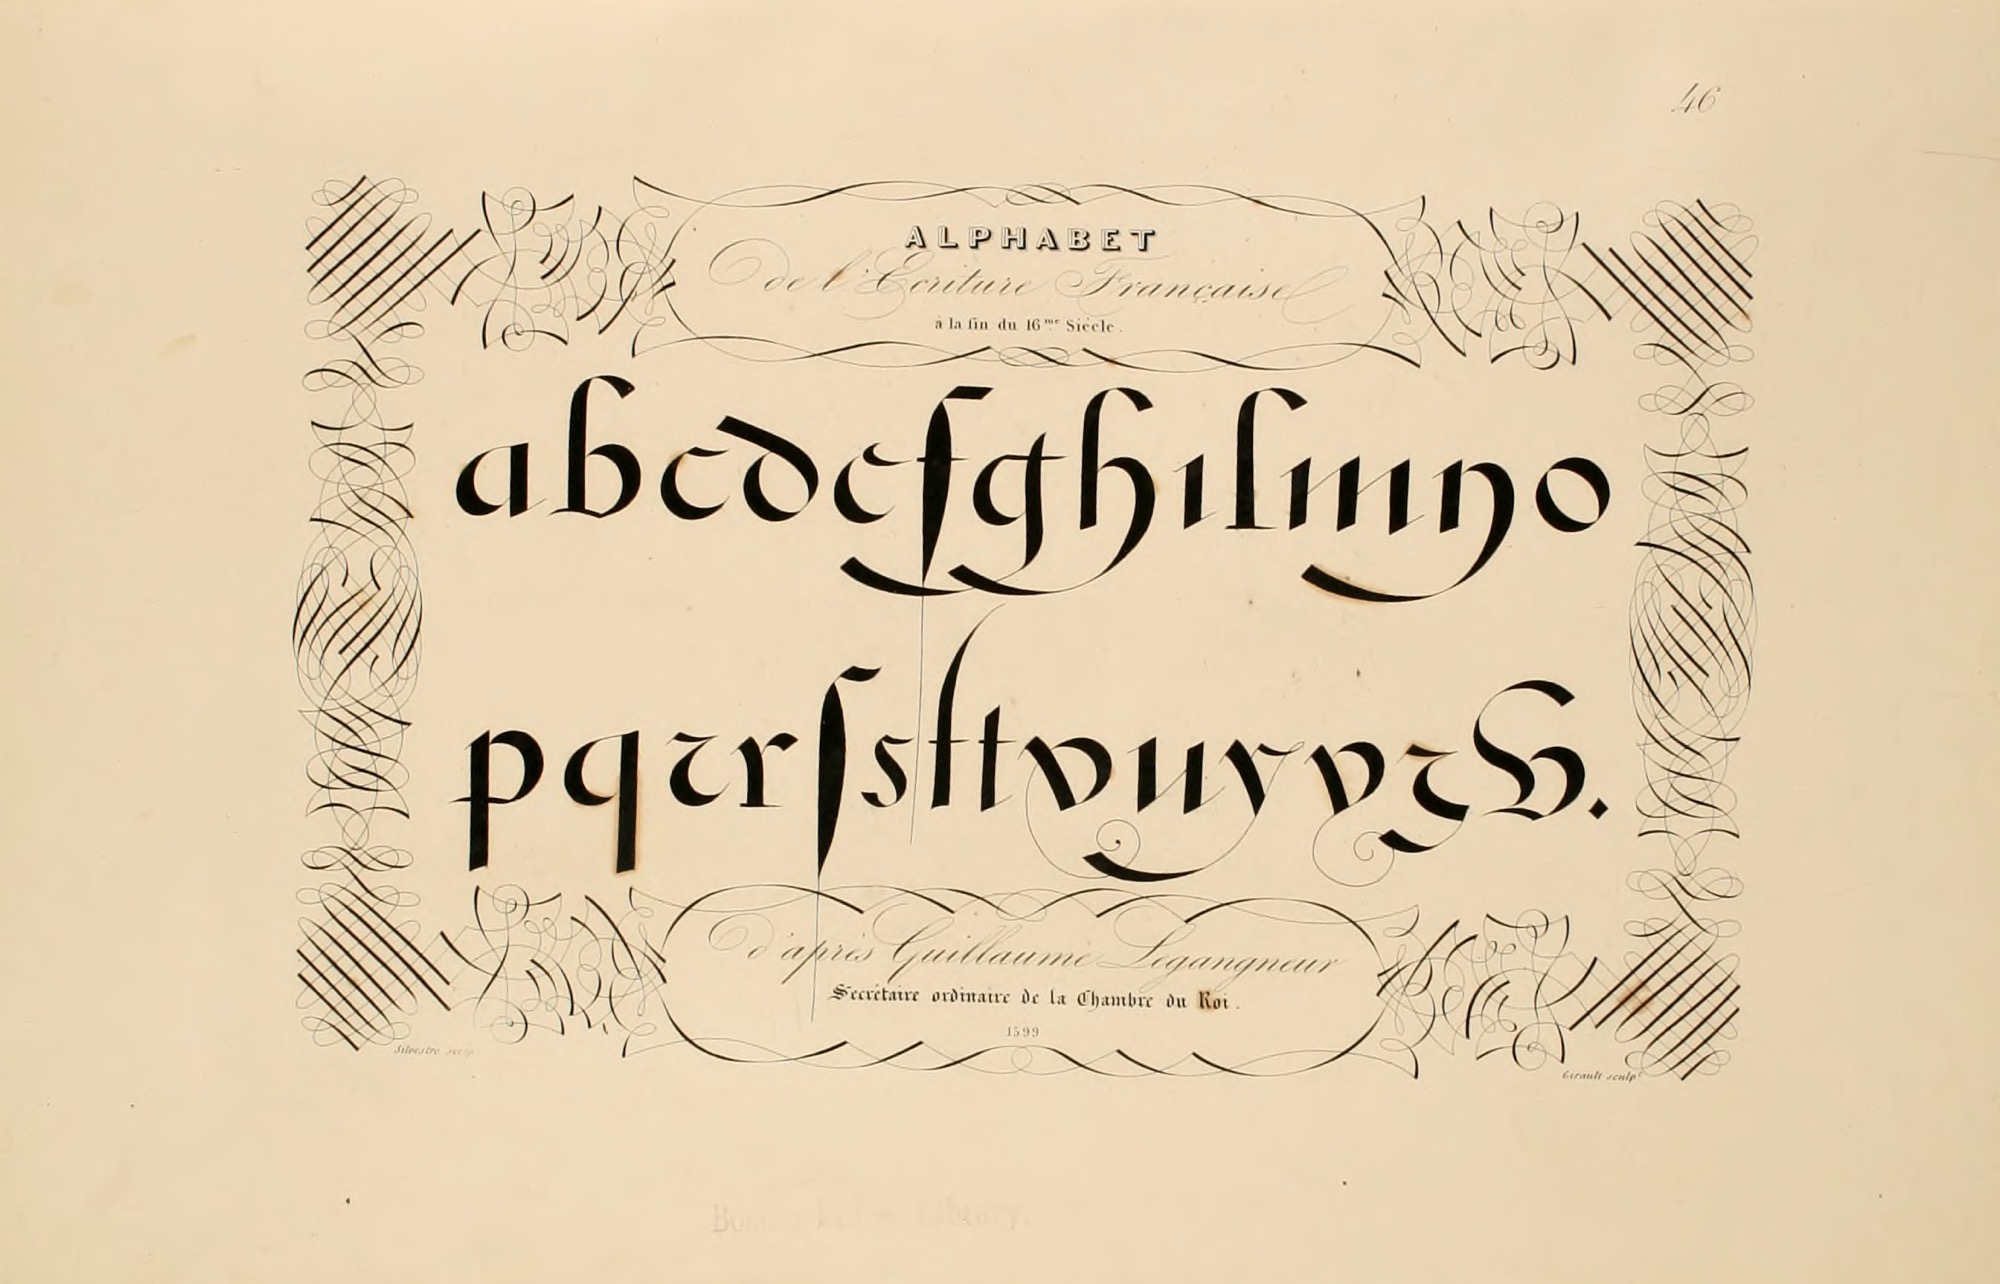 46
ALPHABET
de l'Ecriture Française
à la fin du 16me Siècle.
abcdefghilmno
pqrrſsttvuxyz&.
d'après Guillaume Legangneur
Secrétaire ordinaire de la Chambre du Roi.
1599
Silvestre sculp
Girault sculpt